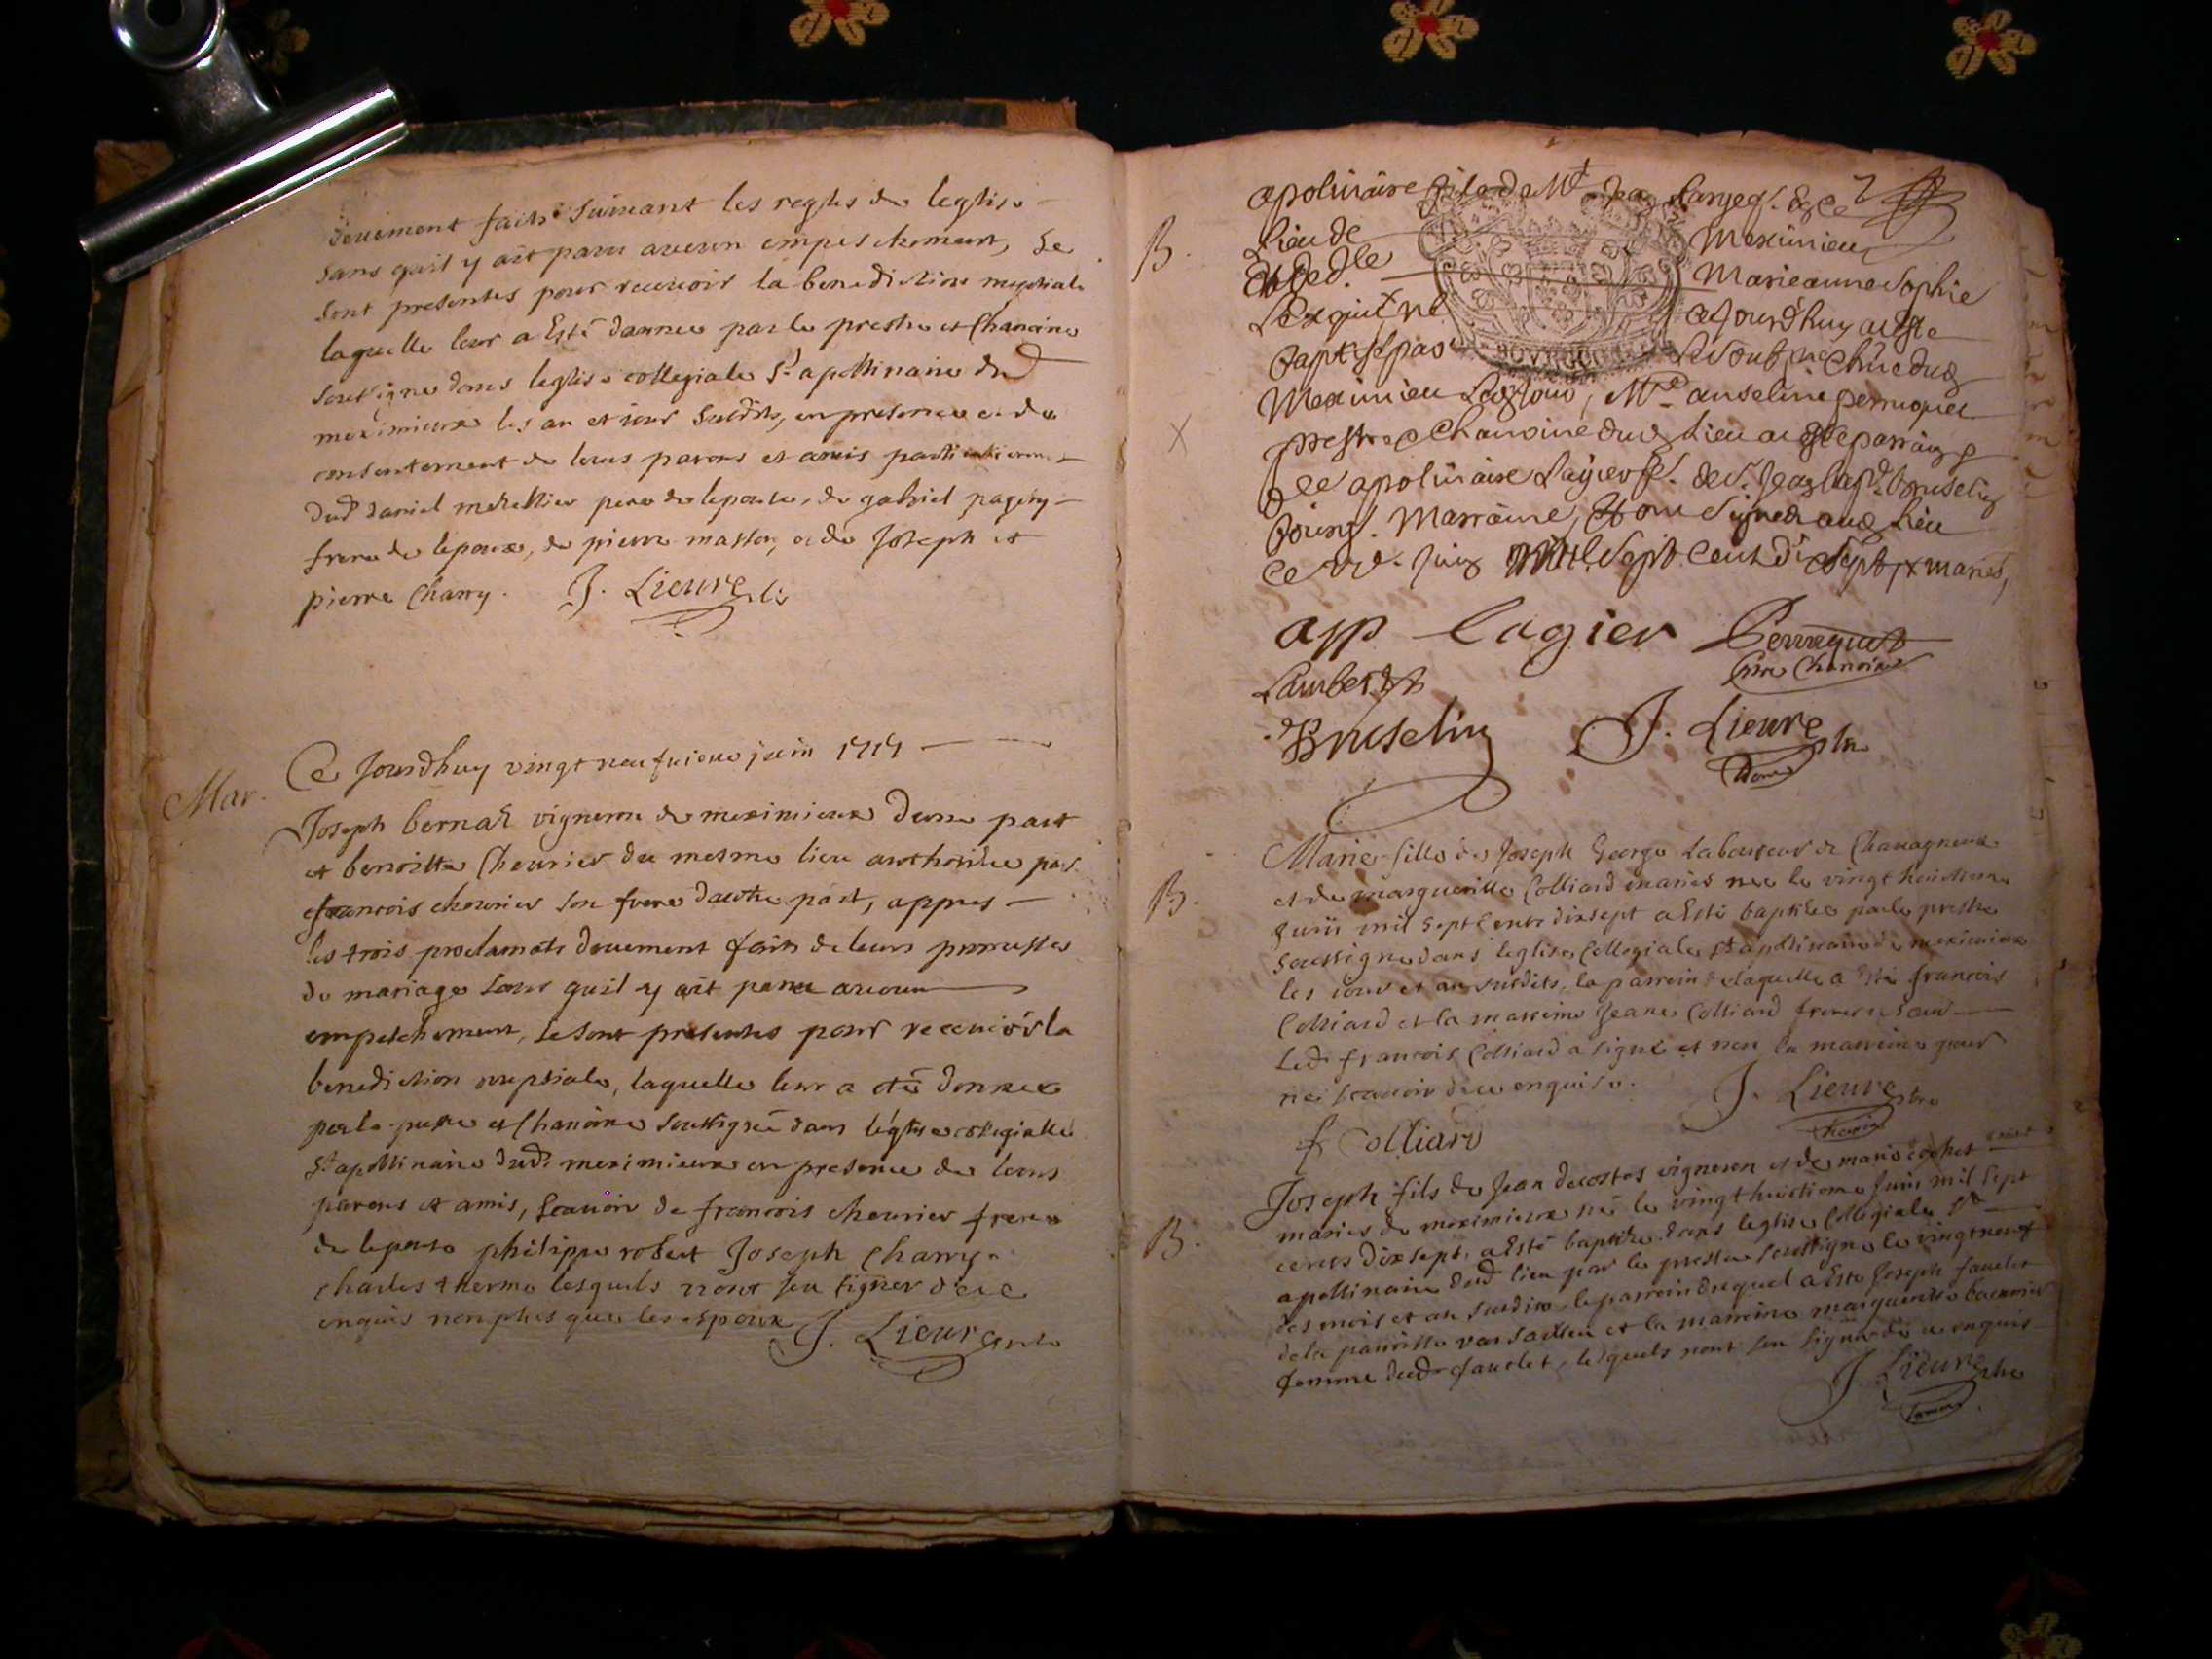 deuement faits suivant les regles de leglise
sans quil y ait paru aucun empeschement, se
sont presentes pour recevoir la benediction nuptiale
laquelle leur a esté donnee par le prestre et Chanoine
soussigne dans leglise collegiale St apollinaire dud
meximieux les an et iour susdits, en presence et du
consentement de leurs parens et amis particulierem.t
dud daniel pere de lepouse, de gabriel
frere de lepoux, de pierre masson, et de Joseph et
pierre Charry. J. Lieure
Mar.
Ce Jourdhuy vingt neufvieme juin 1717
Joseph bernar vigneron de meximieux dune part
et benoitte Cheurier du mesme lieu authorisee par
francois cheurier son frere dautre part, appres
les trois proclamats deuement faits de leurs promesses
de mariage sans quil y ait paru aucun
empeschement, se sont presentes pour recevoir la
benediction nuptiale, laquelle leur a eté donnee
par le prestre et Chanoine soussigné dans léglise collegialle
St apollinaire dud. meximieux en presence de leurs
parens et amis, scauoir de francois cheurier frere
de lepouse philippe robert Joseph Charry
charles therme lesquels nont seu signer de ce
enquis non plus que les espoux J. Lieure
B.
apolinaire fils de Mr
Lieu de Meximieu
Et de d.lle Marieanne Sophie
aJourdhuy a esté
Baptisé par
Meximieu, Mre anselme perruquet
prestre Chanoine dud Lieu a esté parrain
X
de apolinaire Lagier de S. Jean Bap.t bruselin
Marraine, Et ont signez aud Lieu
Ce Juin Mil Sept Cent di Sept
app Lagier Perruquet
pre Chanoine
Lambert
Bruselin J. Lieure
B.
Marie fille de Joseph George Laboureur de Chavagneux
et de margueritte Colliard maries nee le vingt huictieme
Juin mil sept cents dixsept a esté baptisée par le prestre
soussigne dans leglise Collegiale St apollinaire de meximieux
les iour et an susdits, le parrein de laquelle a esté francois
Colliard et la marreine Jeane Colliard frere et soeur
Led. francois Colliard a signé et non la marreine pour
ne scavoir de ce enquise. J. Lieure
f Colliard
B.
Joseph fils de Jean decostes vigneron et de marie cochet
maries de meximieux né le vingt huictieme Juin mil sept
cents dixsept, a esté baptizé dans leglise Collegiale St
apollinaire dud lieu par le prestre soussigne le vingt neuf
des mois et an susdits, le parrein duquel a esté Joseph fauclet
de la parroisse et la marreine marguerite
femme dud. fauclet, lesquels nont seu signer de ce enquis
J. Lieure